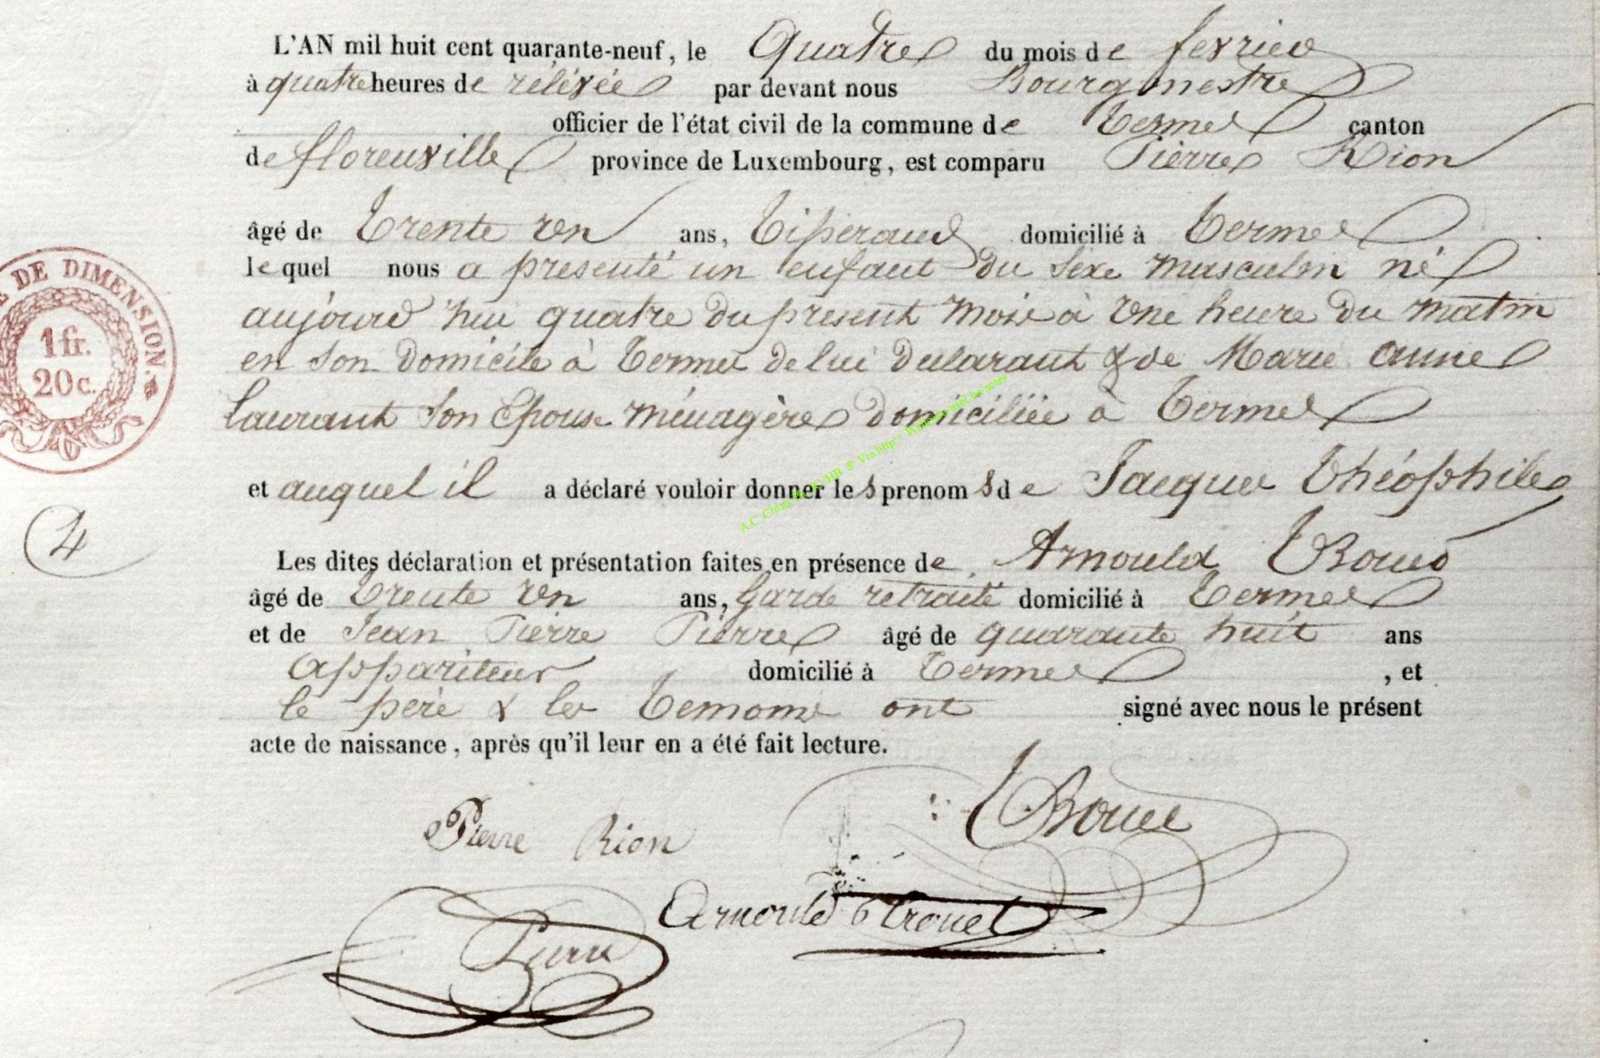 L'AN mil huit cent quarante-neuf, le Quatre du mois de fevrier
à quatre heures de rélévée par devant nous Bourgmestre
officier de l'état civil de la commune de Termes canton
de florenville province de Luxembourg, est comparu Pierre Rion
âgé de trente un ans, Tisserand domicilié à Termes
lequel nous a présenté un enfant du sexe masculin né
aujourd'hui quatre du présent mois à une heure du matin
en son domicile à Termes de lui déclarant & de Marie anne
Laurant son Epouse ménagère domiciliée à Termes
et auquel il a déclaré vouloir donner les prenoms de Jacques théophile
4
Les dites déclaration et présentation faites en présence de Arnould
âgé de trente un ans, Garde retraité domicilié à Termes
et de Jean Pierre Pierre âgé de quarante huit ans
appariteur domicilié à Termes, et
le père & les Temoins ont signé avec nous le présent
acte de naissance, après qu'il leur en a été fait lecture.
Pierre Rion
Arnould
Pierre
DE DIMENSION.
1 fr.
20 c.